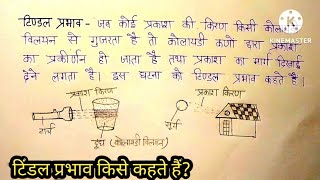 टिण्डल प्रभाव - जब कोई प्रकाश की किरण किसी कोलायडी
विलयन से गुजरता है तो कोलायडी कणो द्वारा प्रकाश
का प्रकीर्णन हो जाता है तथा प्रकाश का मार्ग दिखाई
देने लगता है। इस घटना को टिण्डल प्रभाव कहते है।
KINEMASTER
प्रकाश किरण
प्रकाश किरण
टार्च
सूर्य
दूध (कोलायडी विलयन)
टिंडल प्रभाव किसे कहते हैं?